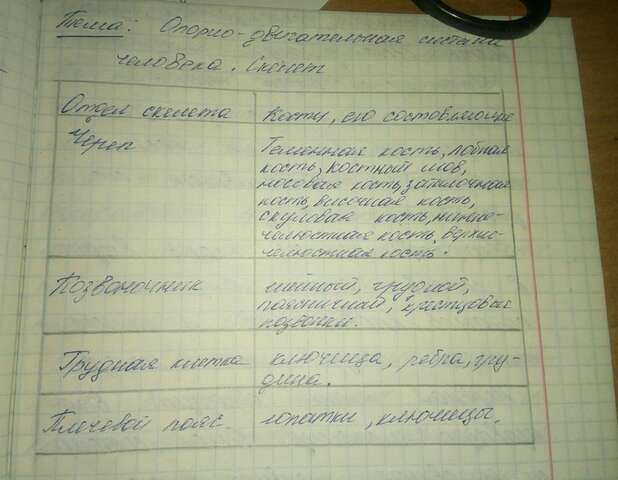 Тема: Опорно-двигательная система
человека. Скелет
Отдел скелета
Кости, его составляющие
Череп
Теменная кость, лобная
кость, костный шов,
носовая кость, затылочная
кость, височная кость,
скуловая кость, нижне-
челюстная кость, верхне-
челюстная кость.
Позвоночник
шейный, грудной,
поясничный, крестцовый
позвонки.
Грудная клетка
ключица, ребра, гру-
дина.
Плечевой пояс
лопатки, ключицы.